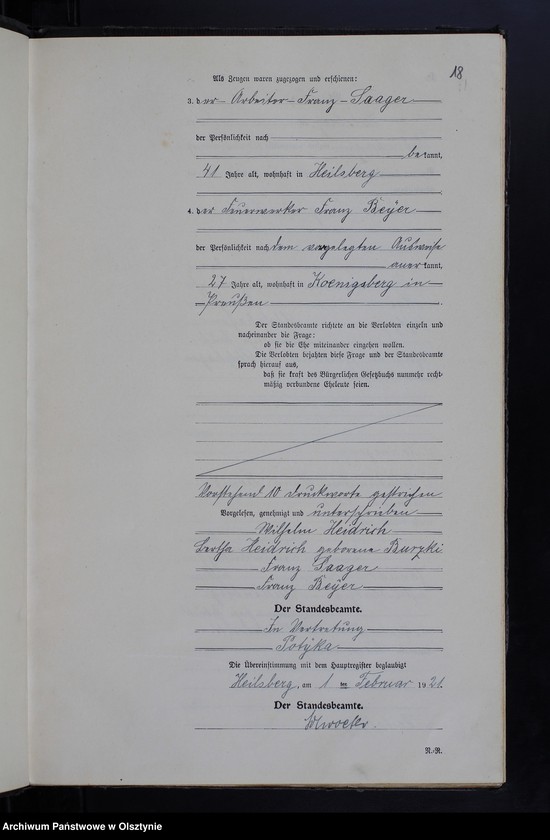 18
Als Zeugen waren zugezogen und erschienen:
3. der Arbeiter Franz Saager
der Persönlichkeit nach
bekannt,
41 Jahre alt, wohnhaft in Heilsberg
4. der Feuerwerker Franz Beÿer
der Persönlichkeit nach dem vorgelegten Ausweise
anerkannt,
27 Jahre alt, wohnhaft in Koenigsberg in
Preußen
Der Standesbeamte richtete an die Verlobten einzeln und
nacheinander die Frage:
ob sie die Ehe miteinander eingehen wollen.
Die Verlobten bejahten diese Frage und der Standesbeamte
sprach hierauf aus,
daß sie kraft des Bürgerlichen Gesetzbuchs nunmehr recht-
mäßig verbundene Eheleute seien.
Vorstehend 10 Druckworte gestrichen
Vorgelesen, genehmigt und unterschrieben
Wilhelm Heidrich
Bertha Heidrich geborene Burzki
Franz Saager
Franz Beÿer
Der Standesbeamte.
In Vertretung
Potÿka
Die Übereinstimmung mit dem Hauptregister beglaubigt
Heilsberg, am 1 ten Februar 1921.
Der Standesbeamte.
N.-R.
Archiwum Państwowe w Olsztynie